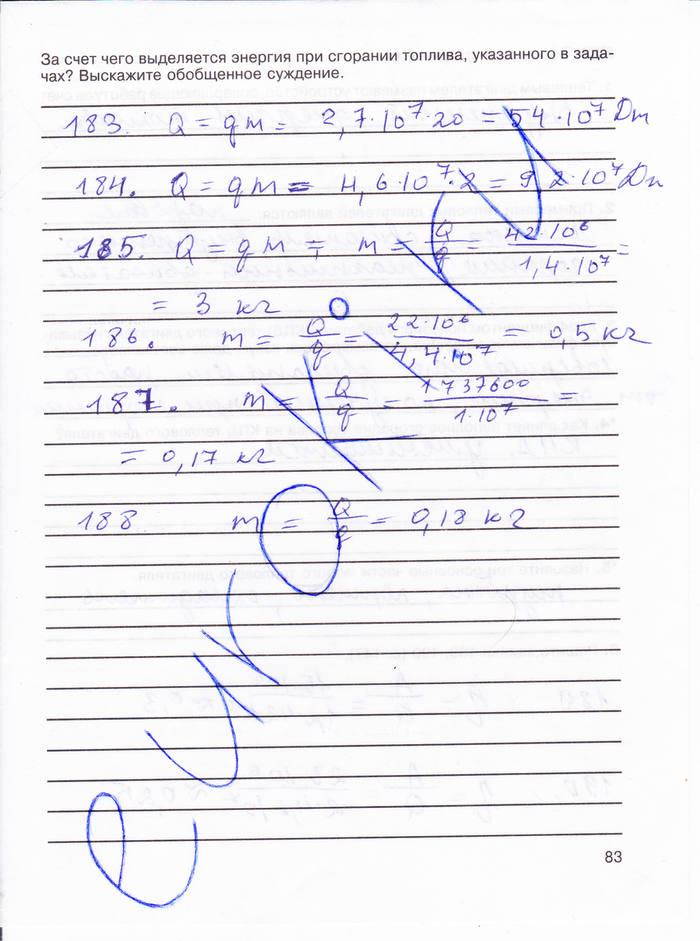 За счет чего выделяется энергия при сгорании топлива, указанного в зада-
чах? Выскажите обобщенное суждение.
183. Q = qm = 2,7·10⁷·20 = 54·10⁷ Дж
184. Q = qm = 4,6·10⁷·2 = 9,2·10⁷ Дж
185. Q = qm = m = Q/q = 42·10⁶/1,4·10⁷ =
= 3 кг
186. m = Q/q = 22·10⁶/4,4·10⁷ = 0,5 кг
187. m = Q/q = 1737600/1·10⁷ =
= 0,17 кг
188 m = Q/q = 0,18 кг
83